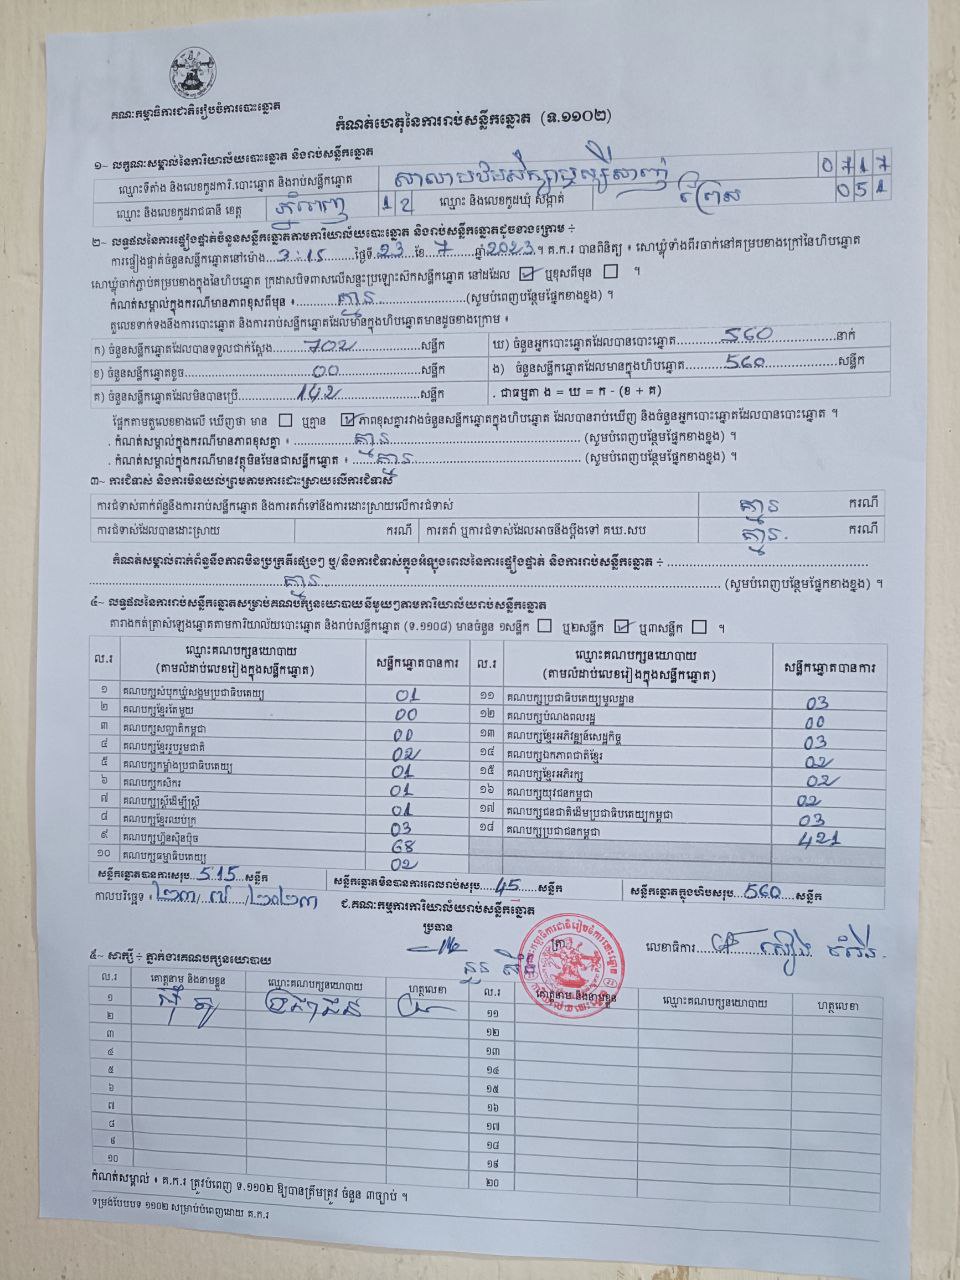 គណៈកម្មាធិការជាតិរៀបចំការបោះឆ្នោត
កំណត់ហេតុនៃការរាប់សន្លឹកឆ្នោត (ទ.១១០២)
១~ លក្ខណៈសម្គាល់នៃការិយាល័យបោះឆ្នោត និងរាប់សន្លឹកឆ្នោត
ឈ្មោះទីតាំង និងលេខកូដការិ.បោះឆ្នោត និងរាប់សន្លឹកឆ្នោត 0717
ឈ្មោះ និងលេខកូដរាជធានី ខេត្ត ភ្នំពេញ 12 ឈ្មោះ និងលេខកូដឃុំ សង្កាត់ ព្រែស 051
២~ លទ្ធផលនៃការផ្ទៀងផ្ទាត់ចំនួនសន្លឹកឆ្នោតតាមការិយាល័យបោះឆ្នោត និងរាប់សន្លឹកឆ្នោតដូចខាងក្រោម ÷
ការផ្ទៀងផ្ទាត់ចំនួនសន្លឹកឆ្នោតនៅម៉ោង 3:15 ថ្ងៃទី 23 ខែ 7 ឆ្នាំ 2023 ។ គ.ក.រ បានពិនិត្យ ៖ សោឃ្លុំទាំងពីរចាក់នៅគម្របខាងក្រៅនៃហិបឆ្នោត
សោឃ្លុំចាក់ភ្ជាប់គម្របខាងក្នុងនៃហិបឆ្នោត ក្រដាសបិទពាសលើសន្ទះប្រឡោះស៊កសន្លឹកឆ្នោត នៅដដែល ឬខុសពីមុន ។
កំណត់សម្គាល់ក្នុងករណីមានភាពខុសពីមុន ៖ គ្មាន (សូមបំពេញបន្ថែមផ្នែកខាងខ្នង) ។
តួលេខទាក់ទងនឹងការបោះឆ្នោត និងការរាប់សន្លឹកឆ្នោតដែលមានក្នុងហិបឆ្នោតមានដូចខាងក្រោម ៖
ក) ចំនួនសន្លឹកឆ្នោតដែលបានទទួលជាក់ស្តែង 702 សន្លឹក ឃ) ចំនួនអ្នកបោះឆ្នោតដែលបានបោះឆ្នោត 560 នាក់
ខ) ចំនួនសន្លឹកឆ្នោតខូច 00 សន្លឹក ង) ចំនួនសន្លឹកឆ្នោតដែលមានក្នុងហិបឆ្នោត 560 សន្លឹក
គ) ចំនួនសន្លឹកឆ្នោតដែលមិនបានប្រើ 142 សន្លឹក . ជាធម្មតា ង = ឃ = ក - (ខ + គ)
ផ្អែកតាមតួលេខខាងលើ ឃើញថា មាន ឬគ្មាន ភាពខុសគ្នារវាងចំនួនសន្លឹកឆ្នោតក្នុងហិបឆ្នោត ដែលបានរាប់ឃើញ និងចំនួនអ្នកបោះឆ្នោតដែលបានបោះឆ្នោត ។
. កំណត់សម្គាល់ក្នុងករណីមានភាពខុសគ្នា ៖ គ្មាន (សូមបំពេញបន្ថែមផ្នែកខាងខ្នង) ។
. កំណត់សម្គាល់ក្នុងករណីមានវត្ថុមិនមែនជាសន្លឹកឆ្នោត ៖ គ្មាន (សូមបំពេញបន្ថែមផ្នែកខាងខ្នង) ។
៣~ ការជំទាស់ និងការមិនយល់ព្រមតាមការដោះស្រាយលើការជំទាស់
ការជំទាស់ពាក់ព័ន្ធនឹងការរាប់សន្លឹកឆ្នោត និងការតវ៉ាទៅនឹងការដោះស្រាយលើការជំទាស់ គ្មាន ករណី
ការជំទាស់ដែលបានដោះស្រាយ ករណី ការតវ៉ា ឬការជំទាស់ដែលអាចនឹងប្តឹងទៅ គឃ.សប គ្មាន. ករណី
កំណត់សម្គាល់ពាក់ព័ន្ធនឹងភាពមិនប្រក្រតីផ្សេងៗ ឬ/និងការជំទាស់ក្នុងអំឡុងពេលនៃការផ្ទៀងផ្ទាត់ និងការរាប់សន្លឹកឆ្នោត ÷
គ្មាន (សូមបំពេញបន្ថែមផ្នែកខាងខ្នង) ។
៤~ លទ្ធផលនៃការរាប់សន្លឹកឆ្នោតសម្រាប់គណបក្សនយោបាយនីមួយៗតាមការិយាល័យរាប់សន្លឹកឆ្នោត
តារាងកត់ត្រាសំឡេងឆ្នោតតាមការិយាល័យបោះឆ្នោត និងរាប់សន្លឹកឆ្នោត (ទ.១១០៨) មានចំនួន ១សន្លឹក ឬ២សន្លឹក ឬ៣សន្លឹក ។
ល.រ ឈ្មោះគណបក្សនយោបាយ (តាមលំដាប់លេខរៀងក្នុងសន្លឹកឆ្នោត) សន្លឹកឆ្នោតបានការ ល.រ ឈ្មោះគណបក្សនយោបាយ (តាមលំដាប់លេខរៀងក្នុងសន្លឹកឆ្នោត) សន្លឹកឆ្នោតបានការ
១ គណបក្សសំបុកឃ្មុំសង្គមប្រជាធិបតេយ្យ 01 ១១ គណបក្សប្រជាធិបតេយ្យមូលដ្ឋាន 03
២ គណបក្សខ្មែរតែមួយ 00 ១២ គណបក្សបំណងពលរដ្ឋ 00
៣ គណបក្សសញ្ជាតិកម្ពុជា 00 ១៣ គណបក្សខ្មែរអភិវឌ្ឍន៍សេដ្ឋកិច្ច 03
៤ គណបក្សខ្មែររួបរួមជាតិ 02 ១៤ គណបក្សឯកភាពជាតិខ្មែរ 02
៥ គណបក្សកម្លាំងប្រជាធិបតេយ្យ 01 ១៥ គណបក្សខ្មែរអភិរក្ស 02
៦ គណបក្សកសិករ 01 ១៦ គណបក្សយុវជនកម្ពុជា 02
៧ គណបក្សស្ត្រីដើម្បីស្ត្រី 01 ១៧ គណបក្សជនជាតិដើមប្រជាធិបតេយ្យកម្ពុជា 03
៨ គណបក្សខ្មែរឈប់ក្រ 03 ១៨ គណបក្សប្រជាជនកម្ពុជា 421
៩ គណបក្សហ៊្វុនស៊ិនប៉ិច 68
១០ គណបក្សធម្មាធិបតេយ្យ 02
សន្លឹកឆ្នោតបានការសរុប 515 សន្លឹក សន្លឹកឆ្នោតមិនបានការពេលរាប់សរុប 45 សន្លឹក សន្លឹកឆ្នោតក្នុងហិបសរុប 560 សន្លឹក
កាលបរិច្ឆេទ ៖ ២៣/៧/២០២៣ ជ.គណៈកម្មការការិយាល័យរាប់សន្លឹកឆ្នោត
ប្រធាន
ត្រា លេខាធិការ
៥~ សាក្សី ÷ ភ្នាក់ងារគណបក្សនយោបាយ
ល.រ គោត្តនាម និងនាមខ្លួន ឈ្មោះគណបក្សនយោបាយ ហត្ថលេខា ល.រ គោត្តនាម និងនាមខ្លួន ឈ្មោះគណបក្សនយោបាយ ហត្ថលេខា
១ ១១
២ ១២
៣ ១៣
៤ ១៤
៥ ១៥
៦ ១៦
៧ ១៧
៨ ១៨
៩ ១៩
១០ ២០
កំណត់សម្គាល់ ៖ គ.ក.រ ត្រូវបំពេញ ទ.១១០២ ឱ្យបានត្រឹមត្រូវ ចំនួន ៣ច្បាប់ ។
ទម្រង់បែបបទ ១១០២ សម្រាប់បំពេញដោយ គ.ក.រ